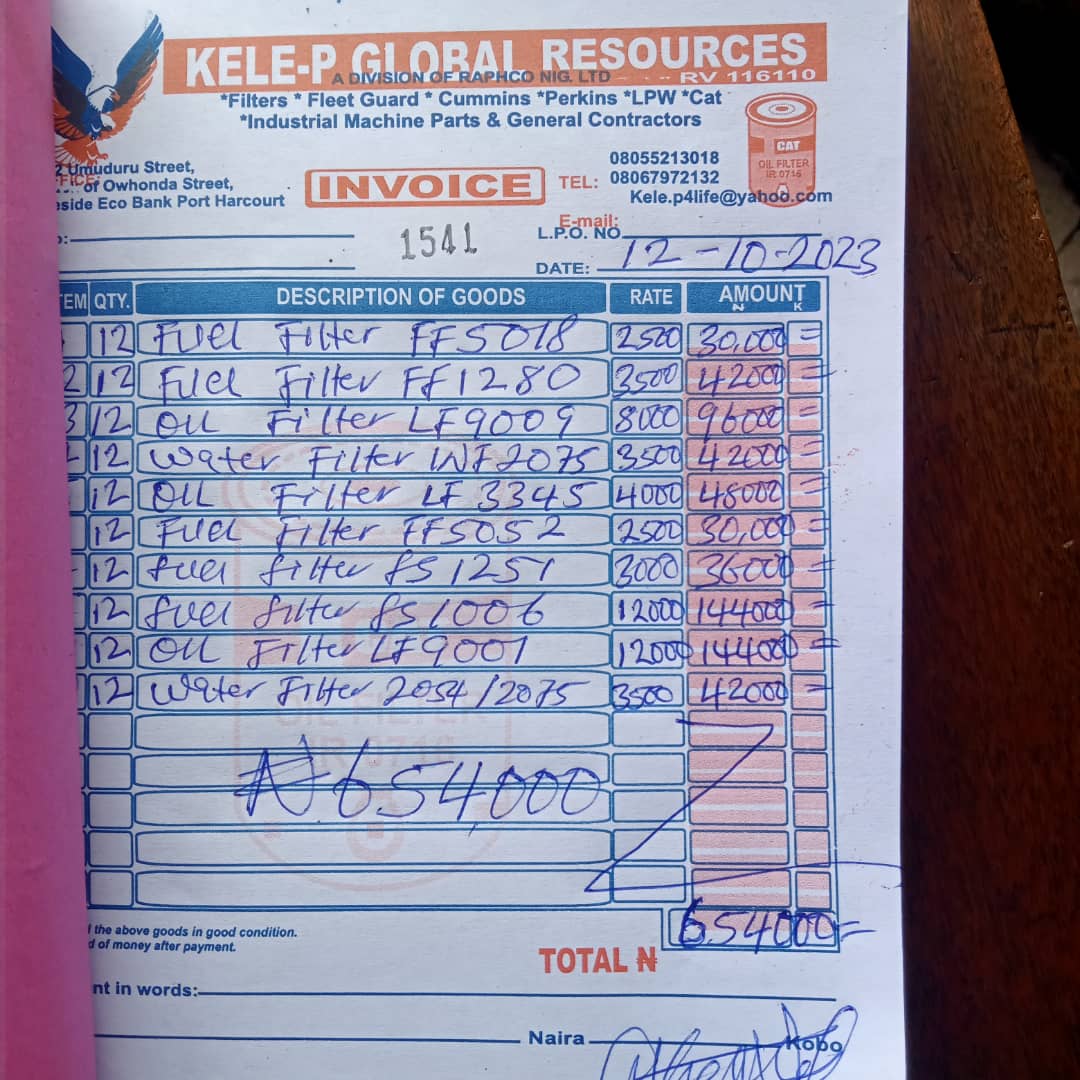 KELE-P GLOBAL RESOURCES
A DIVISION OF RAPHCO NIG. LTD RV 116110
*Filters * Fleet Guard * Cummins *Perkins *LPW *Cat
*Industrial Machine Parts & General Contractors
CAT
OIL FILTER
IR 0716
2 Umuduru Street,
of Owhonda Street,
eside Eco Bank Port Harcourt
INVOICE
TEL: 08055213018
08067972132
E-mail: Kele.p4life@yahoo.com
1541
L.P.O. NO
DATE: 12-10-2023
EM QTY. DESCRIPTION OF GOODS RATE AMOUNT
₦ K
12 Fuel Filter FF5018 2500 30,000 =
2 12 Fuel Filter FF1280 3500 42000 =
3 12 OIL Filter LF9009 8000 96000 =
12 Water Filter WF2075 3500 42000 =
12 OIL Filter LF3345 4000 48000 =
12 Fuel Filter FF5052 2500 30,000 =
12 fuel filter fS1251 3000 36000 =
12 fuel filter fS1006 12000 144000 =
12 OIL Filter LF9001 12000 144000 =
12 Water Filter 2054/2075 3500 42000 =
OIL FILTER
IR 0716
₦654,000
the above goods in good condition.
d of money after payment.
TOTAL ₦ 654000=
nt in words:
Naira Kobo